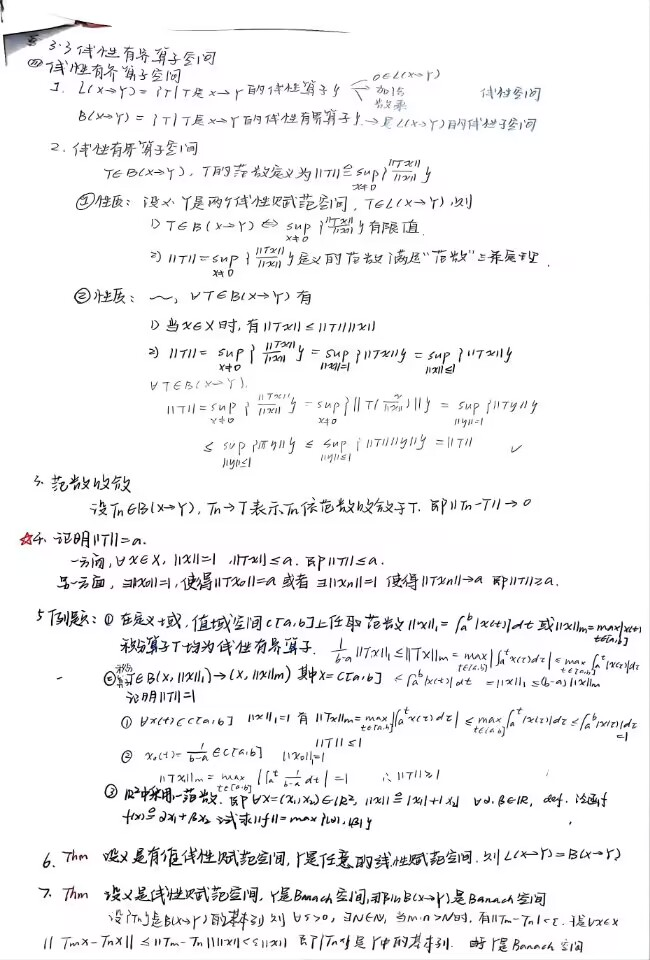 3.3 线性有界算子空间
(四) 线性有界算子空间
1. L(X→Y) = {T | T是X→Y的线性算子} 0∈L(X→Y) 加法 数乘 线性空间
B(X→Y) = {T | T是X→Y的线性有界算子} → 是L(X→Y)的线性子空间
2. 线性有界算子空间
T∈B(X→Y), T的范数定义为||T|| ≜ sup_{x≠0} {||Tx||/||x||}
①性质: 设X、Y是两个线性赋范空间, T∈L(X→Y), 则
1) T∈B(X→Y) ⇔ sup_{x≠0} {||Tx||/||x||} 有限值.
2) ||T|| = sup_{x≠0} {||Tx||/||x||} 定义的范数满足"范数"三条定理.
②性质: ～, ∀T∈B(X→Y) 有
1) 当x∈X时, 有||Tx|| ≤ ||T|| ||x||
2) ||T|| = sup_{x≠0} {||Tx||/||x||} = sup_{||x||=1} {||Tx||} = sup_{||x||≤1} {||Tx||}
∀T∈B(X→Y).
||T|| = sup_{x≠0} {||Tx||/||x||} = sup_{x≠0} {||T(x/||x||)||} = sup_{||y||=1} {||Ty||}
≤ sup_{||y||≤1} {||Ty||} ≤ sup_{||y||≤1} {||T|| ||y||} = ||T|| ✓
3. 范数收敛
设Tn∈B(X→Y), Tn→T 表示Tn依范数收敛于T. 即||Tn-T||→0
☆4. 证明||T||=a.
一方面, ∀x∈X, ||x||=1, ||Tx||≤a. 即||T||≤a.
另一方面, ∃||x0||=1, 使得||Tx0||=a 或者 ∃||xn||=1 使得||Txn||→a 即||T||≥a.
5 例题: ① 在定义域, 值域空间C[a,b]上任取范数||x||₁=∫_a^b |x(t)|dt 或||x||m=max_{t∈[a,b]}|x(t)|
积分算子T均为线性有界算子. 1/(b-a) ||Tx||₁ ≤ ||Tx||m = max_{t∈[a,b]} |∫_a^t x(τ)dτ| ≤ max_{t∈[a,b]} ∫_a^t |x(τ)|dτ
② 积分算子 T∈B(X, ||x||₁)→(X, ||x||m) 其中X=C[a,b] ≤ ∫_a^b |x(t)|dt = ||x||₁ ≤ (b-a)||x||m
证明||T||=1
① ∀x(t)∈C[a,b] ||x||₁=1 有||Tx||m = max_{t∈[a,b]} |∫_a^t x(τ)dτ| ≤ max_{t∈[a,b]} ∫_a^t |x(τ)|dτ ≤ ∫_a^b |x(τ)|dτ =1
||T||≤1
② x₀(t) = 1/(b-a) ∈C[a,b] ||x₀||₁=1
||Tx||m = max_{t∈[a,b]} |∫_a^t 1/(b-a) dt| =1 ∴||T||≥1
③ R²中采用一范数. 即∀x=(x₁,x₂)∈R², ||x||≜|x₁|+|x₂| ∀α,β∈R, def. 泛函f
f(x)≜αx₁+βx₂ 试求||f||=max{|α|,|β|}
6. Thm 设X是有限维线性赋范空间, Y是任意的线性赋范空间. 则L(X→Y)=B(X→Y)
7. Thm 设X是线性赋范空间, Y是Banach空间, 那么B(X→Y)是Banach空间
设{Tn}是B(X→Y)的基本列 则 ∀ε>0, ∃N∈N, 当m,n>N时, 有||Tm-Tn||<ε. ∀x∈X
||Tmx-Tnx|| ≤ ||Tm-Tn|| ||x|| < ε||x|| 即{Tnx}是Y中的基本列. 由于Y是Banach空间